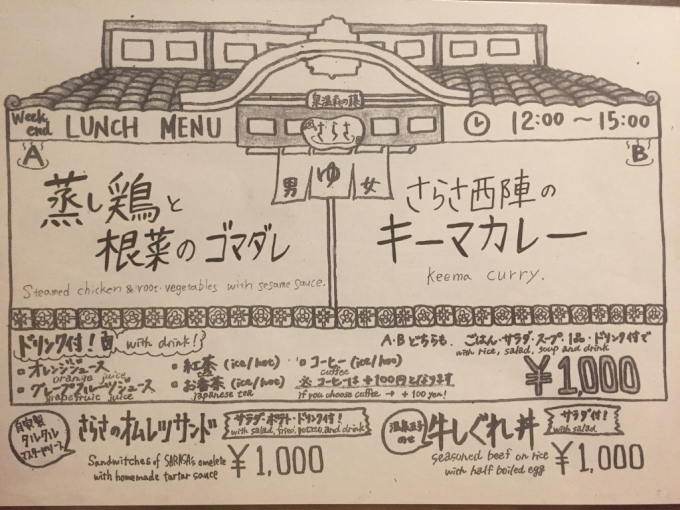 Week end LUNCH MENU
さらさ
12:00 ～ 15:00
男 ゆ 女
A
蒸し鶏と
根菜のゴマダレ
Steamed chicken & root vegetables with sesame sauce.
B
さらさ西陣の
キーマカレー
keema curry.
ドリンク付！ with drink!
・オレンジジュース
orange juice
・グレープフルーツジュース
grapefruit juice
・紅茶 (ice/hot)
・お番茶 (ice/hot)
Japanese tea
・コーヒー (ice/hot)
coffee
※ コーヒーは +100円となります
if you choose coffee → + 100 yen!
A・Bどちらも、ごはん・サラダ・スープ・1品・ドリンク付で
with rice, salad, soup and drink
¥1,000
自家製
タルタル
マスタードソース
さらさのオムレツサンド
サラダ・ポテト・ドリンク付！
with salad, fried potato, and drink
Sandwitches of SARASA's omelete
with homemade tartar sauce
¥1,000
温泉玉子
のせ
牛しぐれ丼
サラダ付！
with salad
seasoned beef on rice
with half boiled egg
¥1,000